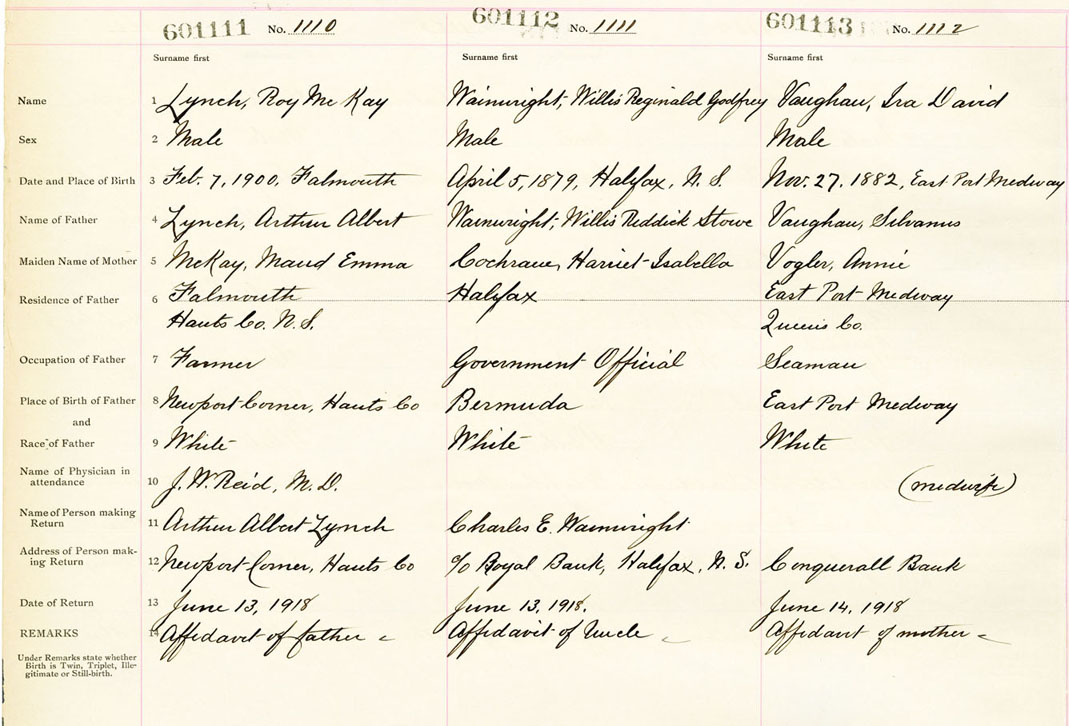 601111 No. 1110 601112 No. 1111 601113 No. 1112
Surname first Surname first Surname first
Name 1 Lynch, Roy Mc Kay Wainwright, Willis Reginald Godfrey Vaughan, Ira David
Sex 2 Male Male Male
Date and Place of Birth 3 Feb. 7, 1900, Falmouth April 5, 1879, Halifax, N. S. Nov. 27, 1882, East Port Medway
Name of Father 4 Lynch, Arthur Albert Wainwright, Willis Reddick Stowe Vaughan, Silvanus
Maiden Name of Mother 5 McKay, Maud Emma Cochrane, Harriet Isabella Vogler, Annie
Residence of Father 6 Falmouth Halifax East Port Medway
Hants Co. N. S. Queens Co.
Occupation of Father 7 Farmer Government Official Seaman
Place of Birth of Father 8 Newport Corner, Hants Co Bermuda East Port Medway
and
Race of Father 9 White White White
Name of Physician in
attendance 10 J. W. Reid, M. D. (midwife)
Name of Person making
Return 11 Arthur Albert Lynch Charles E. Wainwright
Address of Person mak-
ing Return 12 Newport Corner, Hants Co c/o Royal Bank, Halifax, N. S. Conquerall Bank
Date of Return 13 June 13, 1918 June 13, 1918. June 14, 1918
REMARKS 14 Affidavit of father Affidavit of Uncle Affidavit of mother
Under Remarks state whether
Birth is Twin, Triplet, Ille-
gitimate or Still-birth.